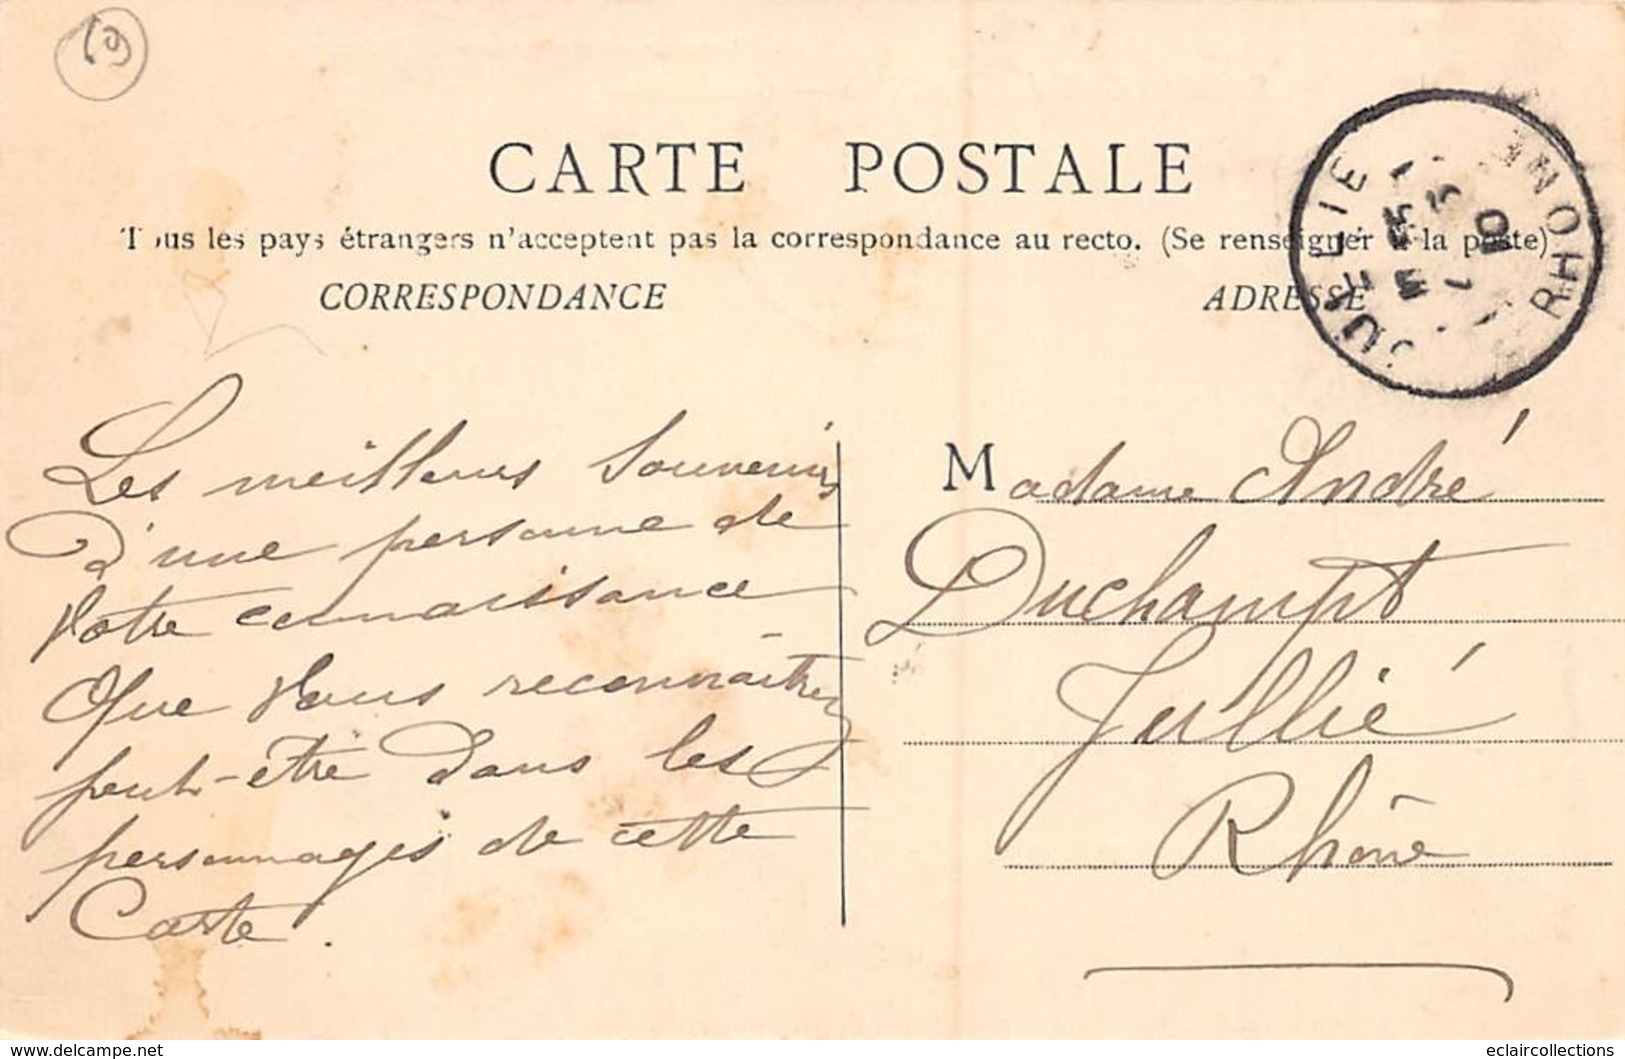 69
CARTE POSTALE
Tous les pays étrangers n'acceptent pas la correspondance au recto. (Se renseigner à la poste)
CORRESPONDANCE
ADRESSE
JULLIE
RHONE
Les meilleurs souvenirs
d'une personne de
votre connaissance
que vous reconnaitrez
peut-etre dans les
personnages de cette
Carte.
Madame André
Duchampt
Jullié
Rhône
www.delcampe.net
eclaircollections